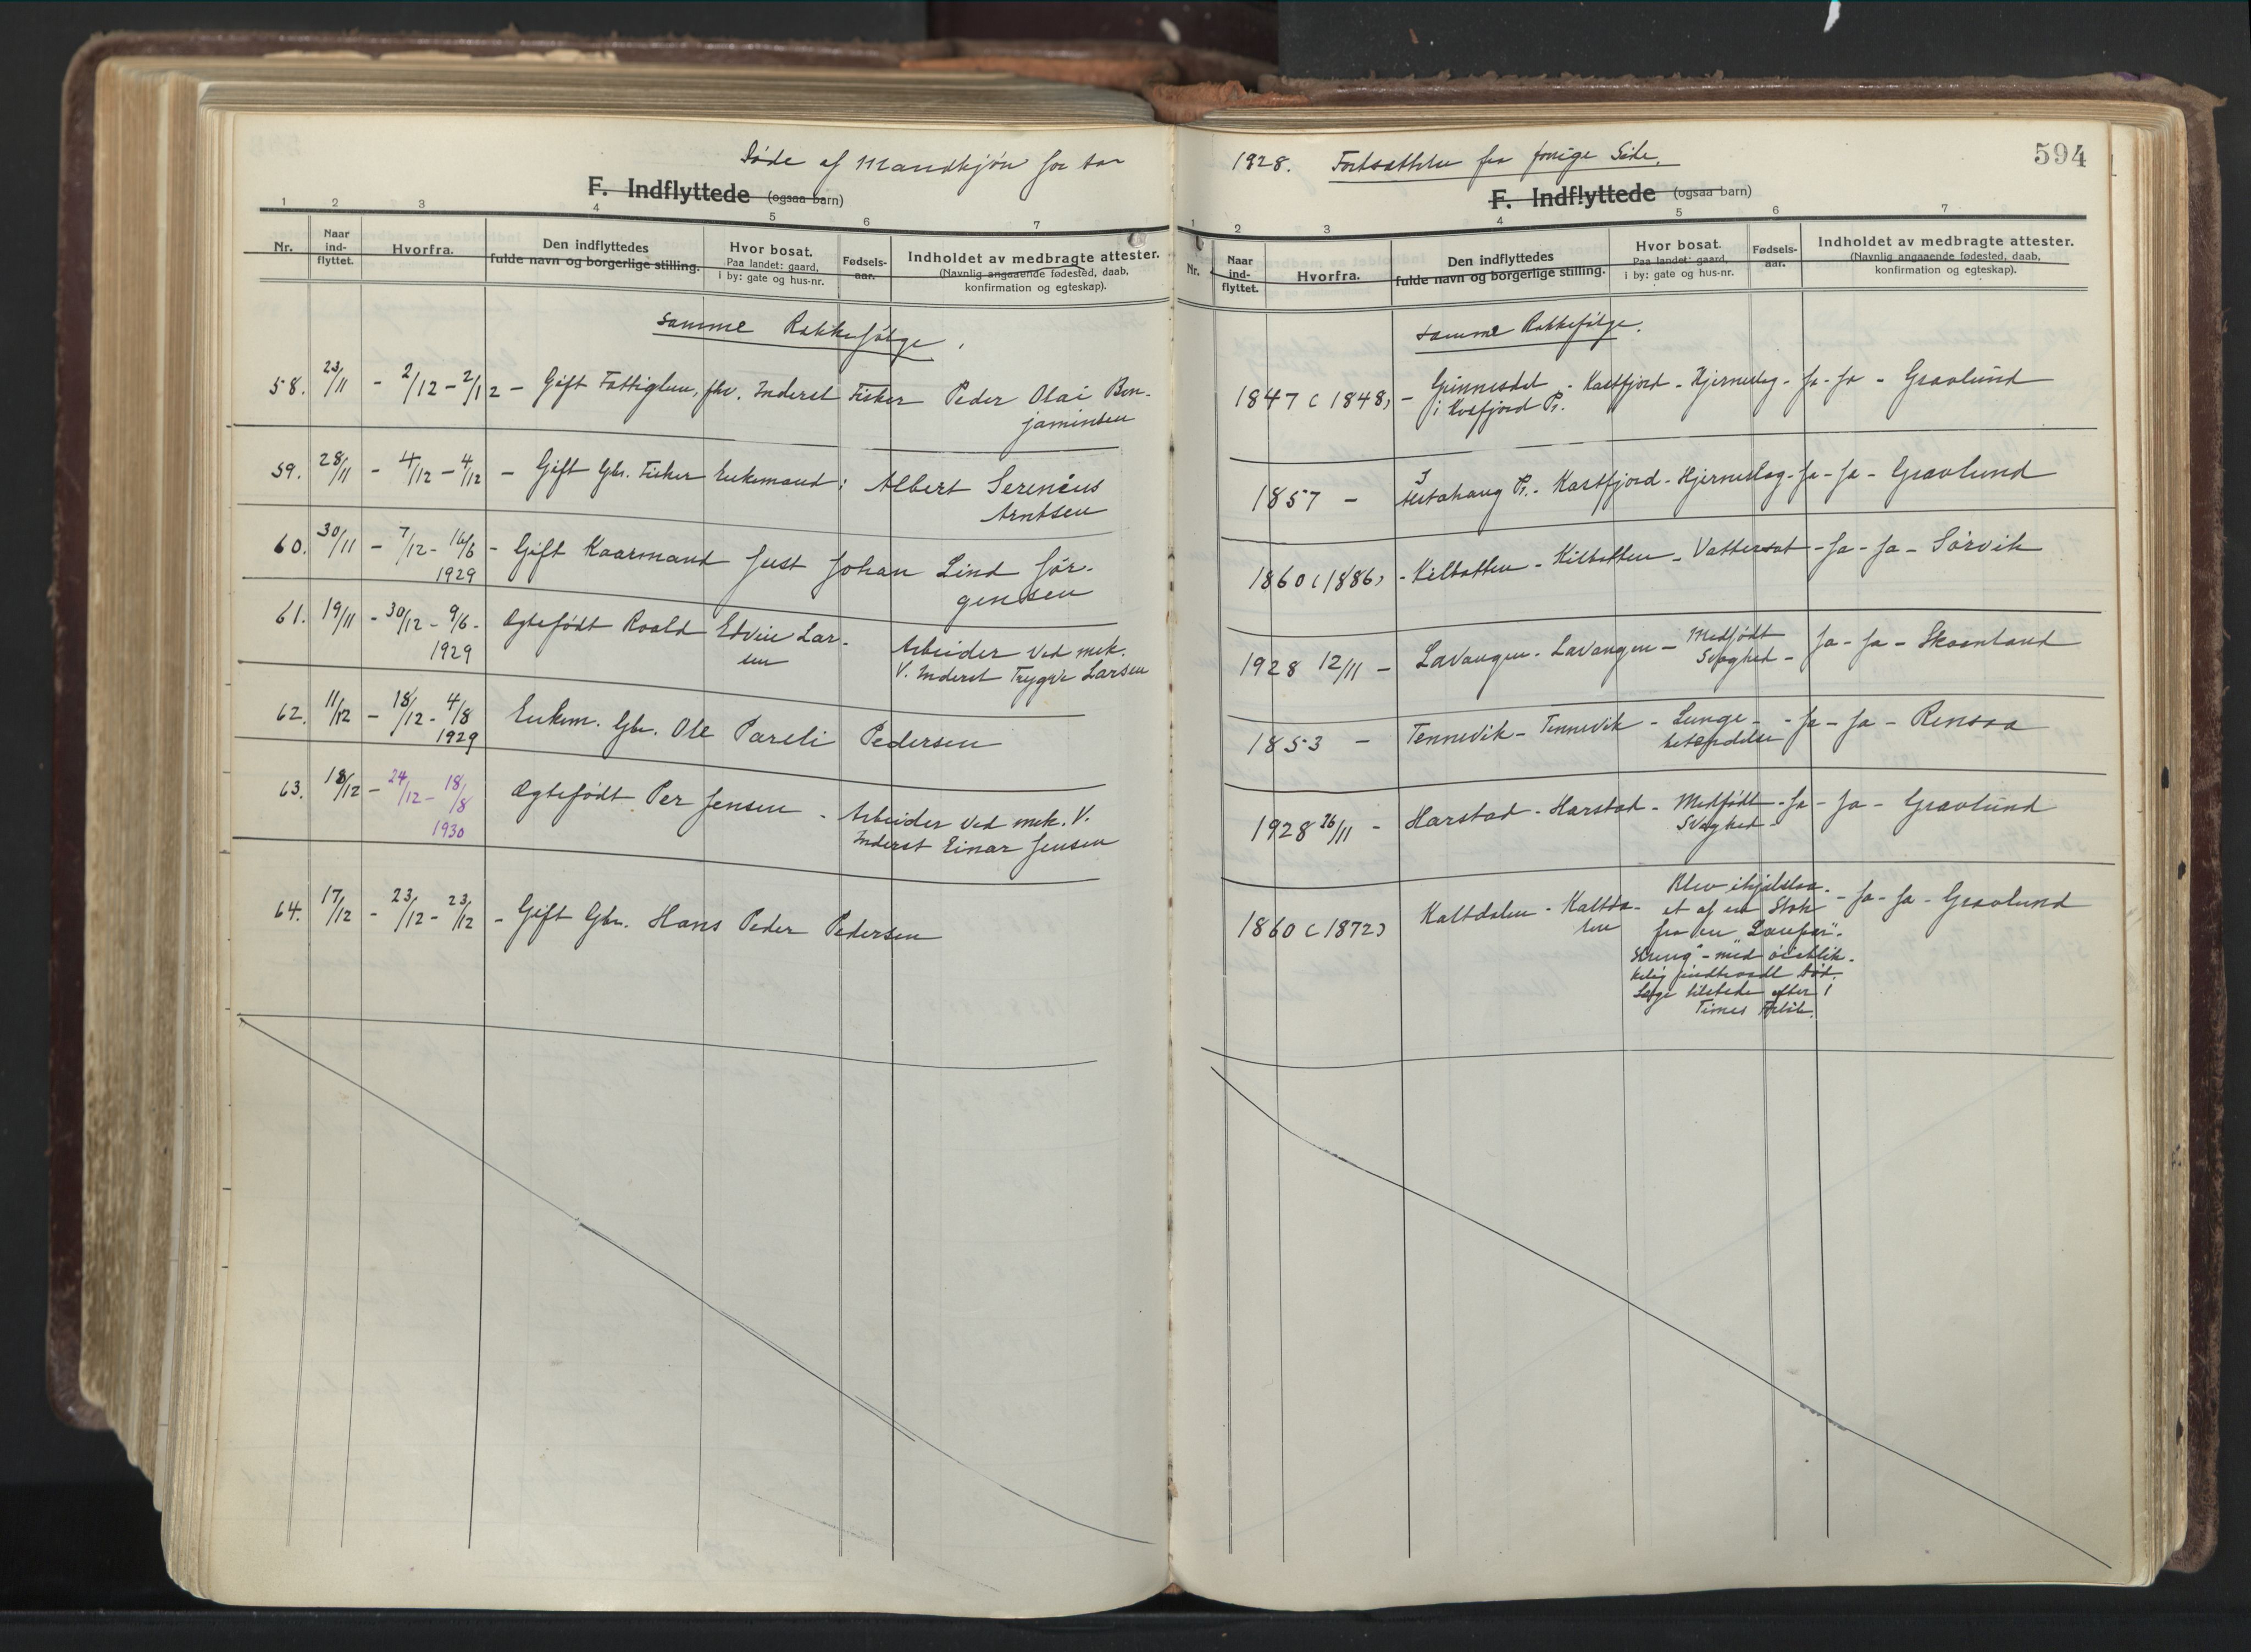 Døde af Mandkjøn for Aar
F. Indflyttede (ogsaa barn)
1 2 3 4 5 6 7
Nr.
Naar ind- flyttet.
Hvorfra.
Den indflyttedes fulde navn og borgerlige stilling.
Hvor bosat. Paa landet: gaard, i by: gate og hus-nr.
Fødsels- aar.
Indholdet av medbragte attester. (Navnlig angaaende fødested, daab, konfirmation og egteskap).
samme Rækkefølge.
58. 23/11 - 2/12 - 2/12 - Gift Fattiglem, fhv. Inderst Fisker Peder Olai Ben-
jaminsen
59. 28/11 - 4/12 - 4/12 - Gift Gbr. Fisker Enkemand: Albert Serenius
Arntsen
60. 30/11 - 7/12 - 16/6 - Gift Kaarmand Just Johan Lind Jør-
1929 gensen
61. 19/11 - 30/12 - 9/6 - Ægtefødt Roald Edvin Lar- Arbeider ved mek.
1929 sen V. Inderst Trygve Larsen
62. 11/12 - 18/12 - 4/8 Enkem. Gbr. Ole Pareli Pedersen
1929
63. 18/12 - 24/12 - 18/8 Ægtefødt Per Jensen - Arbeider ved mek. V.
1930 Inderst Einar Jensen
64. 17/12 - 23/12 - 23/12 - Gift Gbr. Hans Peder Pedersen
1928. Fortsættelse fra forrige Side.
594
F. Indflyttede (ogsaa barn)
1 2 3 4 5 6 7
Nr.
Naar ind- flyttet.
Hvorfra.
Den indflyttedes fulde navn og borgerlige stilling.
Hvor bosat. Paa landet: gaard, i by: gate og hus-nr.
Fødsels- aar.
Indholdet av medbragte attester. (Navnlig angaaende fødested, daab, konfirmation og egteskap).
samme Rækkefølge.
1847 (1848) - Grinnesdal - Kastfjord - Hjerneslag - Ja - Ja - Gravlund
i Kvæfjord Pr.
1857 - I Alstahaug Pr. - Kastfjord - Hjerneslag - Ja - Ja - Gravlund
1860 (1886) - Kilbotten - Kilbotten - Vattersot - Ja - Ja - Sørvik
1928 12/11 - Lavangen - Lavangen - Medfødt
Svaghed - Ja - Ja - Skaanland
1853 - Tennevik - Tennevik - Lunge-
betændelse - Ja - Ja - Rensaa
1928 26/11 - Harstad - Harstad - Medfødt
Svaghed - Ja - Ja - Gravlund
1860 (1872) Kaltdalen - Kaltda-
len
Blev ihjelslaa-
et af en Stok - Ja - Ja - Gravlund
fra en "Laupar-
streng" - med øieblik-
kelig indtraadt Død.
Læge tilstede efter 1
Times Forløb.